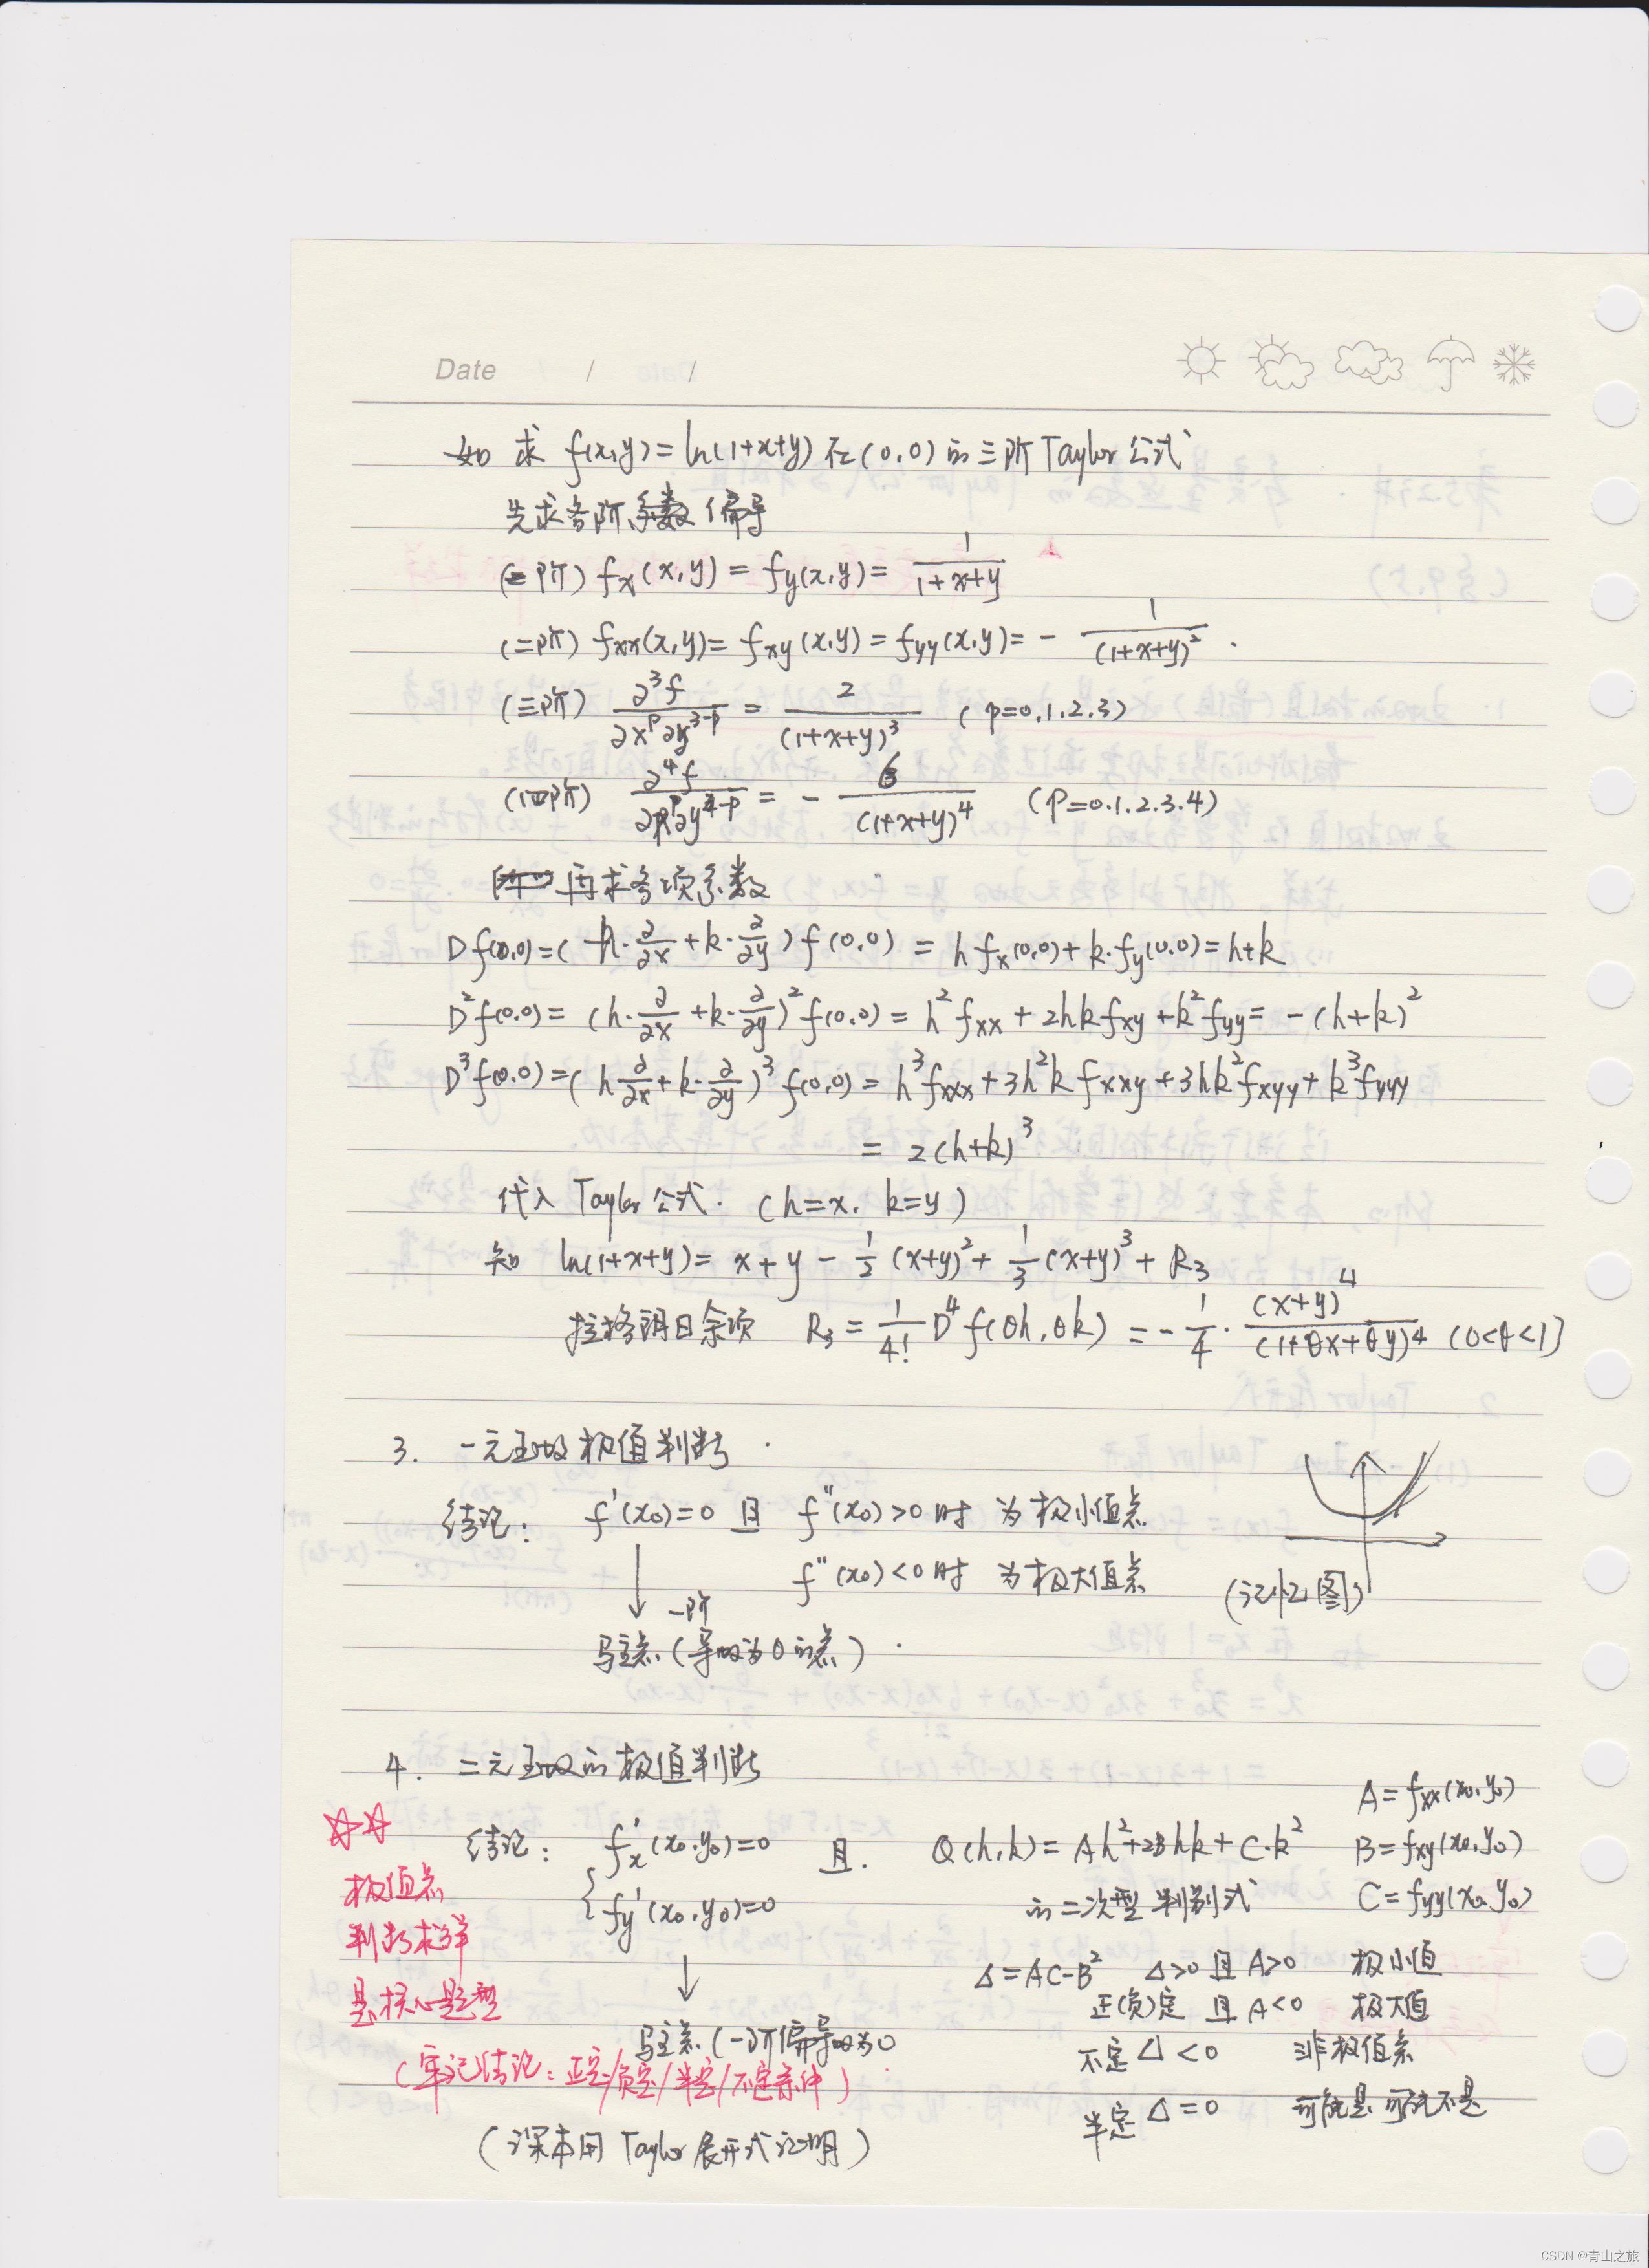 Date / /
如 求 f(x,y)=ln(1+x+y) 在(0,0)的三阶Taylor公式
先求各阶偏导
(一阶) fx(x,y) = fy(x,y) = 1/(1+x+y)
(二阶) fxx(x,y) = fxy(x,y) = fyy(x,y) = - 1/(1+x+y)².
(三阶) ∂³f/∂x^p∂y^(3-p) = 2/(1+x+y)³ (p=0,1,2,3)
(四阶) ∂⁴f/∂x^p∂y^(4-p) = - 6/(1+x+y)⁴ (p=0.1.2.3.4)
再求各项系数
Df(0,0)=(h·∂/∂x+k·∂/∂y)f(0,0) = h fx(0,0)+k·fy(0,0)=h+k
D²f(0,0) = (h·∂/∂x+k·∂/∂y)²f(0,0) = h²fxx+2hkfxy+k²fyy = -(h+k)²
D³f(0,0)=(h∂/∂x+k·∂/∂y)³f(0,0) = h³fxxx+3h²kfxxy+3hk²fxyy+k³fyyy
= 2(h+k)³
代入Taylor公式. (h=x, k=y)
知 ln(1+x+y) = x+y - 1/2(x+y)² + 1/3(x+y)³ + R₃
拉格朗日余项 R₃ = 1/4! D⁴f(θh,θk) = - 1/4 · (x+y)⁴/(1+θx+θy)⁴ (0<θ<1)
3. 一元函数极值判断.
结论: f'(x₀)=0 且 f''(x₀)>0时 为极小值点
f''(x₀)<0时 为极大值点
(记忆图)
驻点(一阶导数为0的点).
4. 二元函数的极值判断
A=fxx(x₀,y₀)
结论: { fx'(x₀,y₀)=0 且. Q(h,k)=Ah²+2Bhk+C·k² B=fxy(x₀,y₀)
fy'(x₀,y₀)=0 的二次型判别式 C=fyy(x₀,y₀)
☆☆
极值点
判断求样
是核心题型
Δ=AC-B² Δ>0 且A>0 极小值
正(负)定 且A<0 极大值
驻点(一阶偏导数为0
不定 Δ<0 非极值点
(牢记结论:正定/负定/半定/不定条件)
半定 Δ=0 可能是可能不是
(课本用Taylor展开式证明)
CSDN @青山之旅